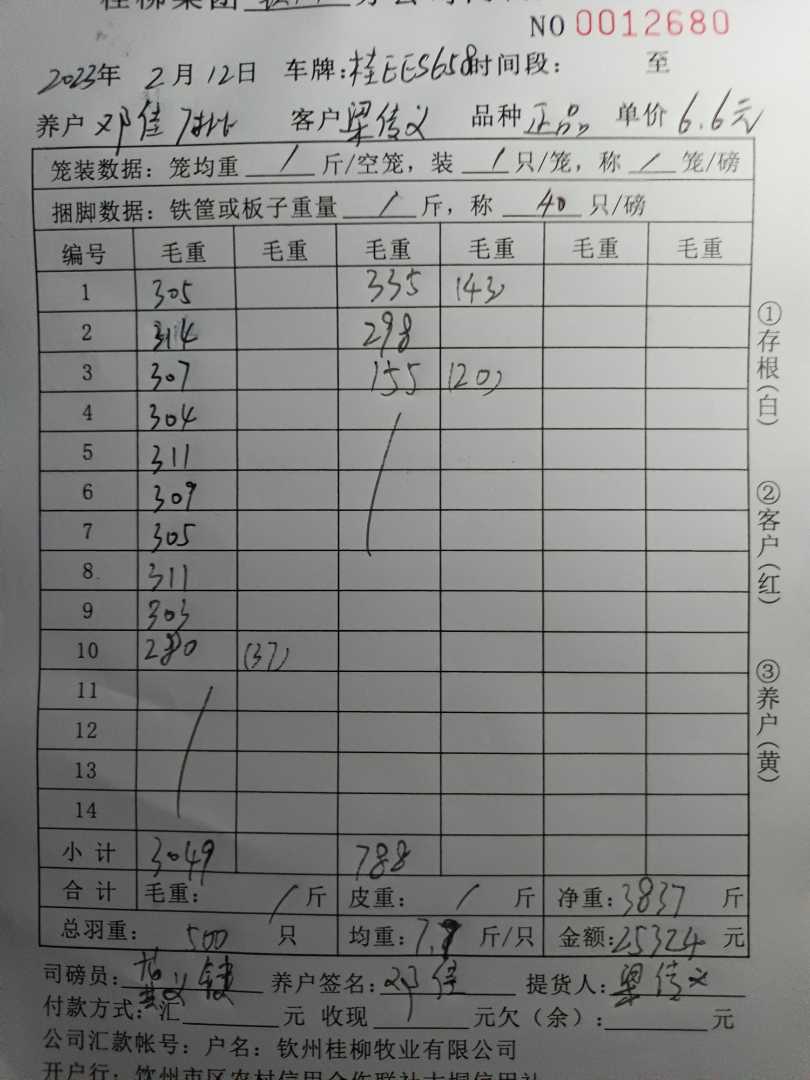 桂柳集团
NO 0012680
2023年 2月12日 车牌:桂EES658时间段: 至
养户 邓佳 客户梁传义 品种 正品 单价 6.6元
笼装数据: 笼均重 / 斤/空笼, 装 / 只/笼, 称 / 笼/磅
捆脚数据: 铁筐或板子重量 / 斤, 称 40 只/磅
编号 毛重 毛重 毛重 毛重 毛重 毛重
1 305 335 (43)
2 314 298
3 307 155 (20)
4 304
5 311
6 309
7 305
8 311
9 303
10 280 (37)
11
12
13
14
小计 3049 788
合计 毛重: / 斤 皮重: / 斤 净重:3837 斤
总羽重: 500 只 均重:7. 斤/只 金额:25324 元
司磅员: 养户签名: 邓佳 提货人: 梁传义
付款方式: 汇 元 收现 / 元欠(余): 元
公司汇款帐号: 户名: 钦州桂柳牧业有限公司
开户行: 钦州市区农村信用合作联社大垌信用社
①存根(白)
②客户(红)
③养户(黄)